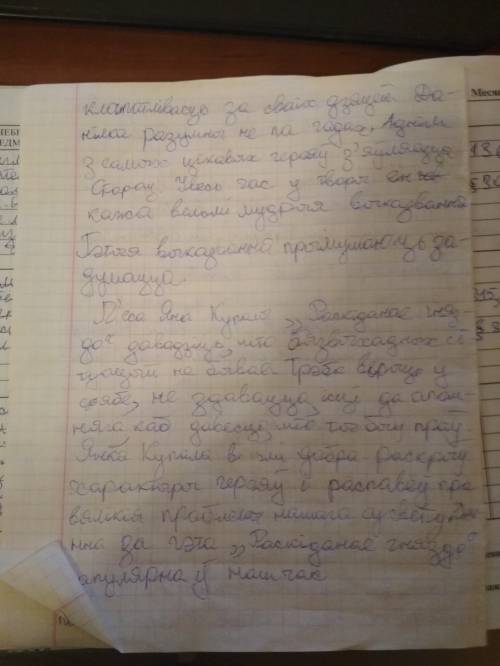 клапатлівасцю за сваіх дзяцей. Да-
нілка разумны не па гадах. Адным
з самых цікавых герояў з'яўляецца
Старац. Увесь час у творы ён
кажа вельмі мудрыя выказванні
Гэтыя выказванні прымушаюць за-
думацца.
П'еса Янкі Купалы „Раскіданае гняз-
до" даводзіць, што бязвыхадных сі-
туацый не бывае. Трэба верыць у
сябе, не здавацца, ісці да апош-
няга каб давесці, што ты быў праў.
Янка Купала вельмі добра раскрыў
характары герояў і распавёў пра
вялікія праблемы нашага
за гэта „Раскіданае гняздо"
папулярна ў наш час